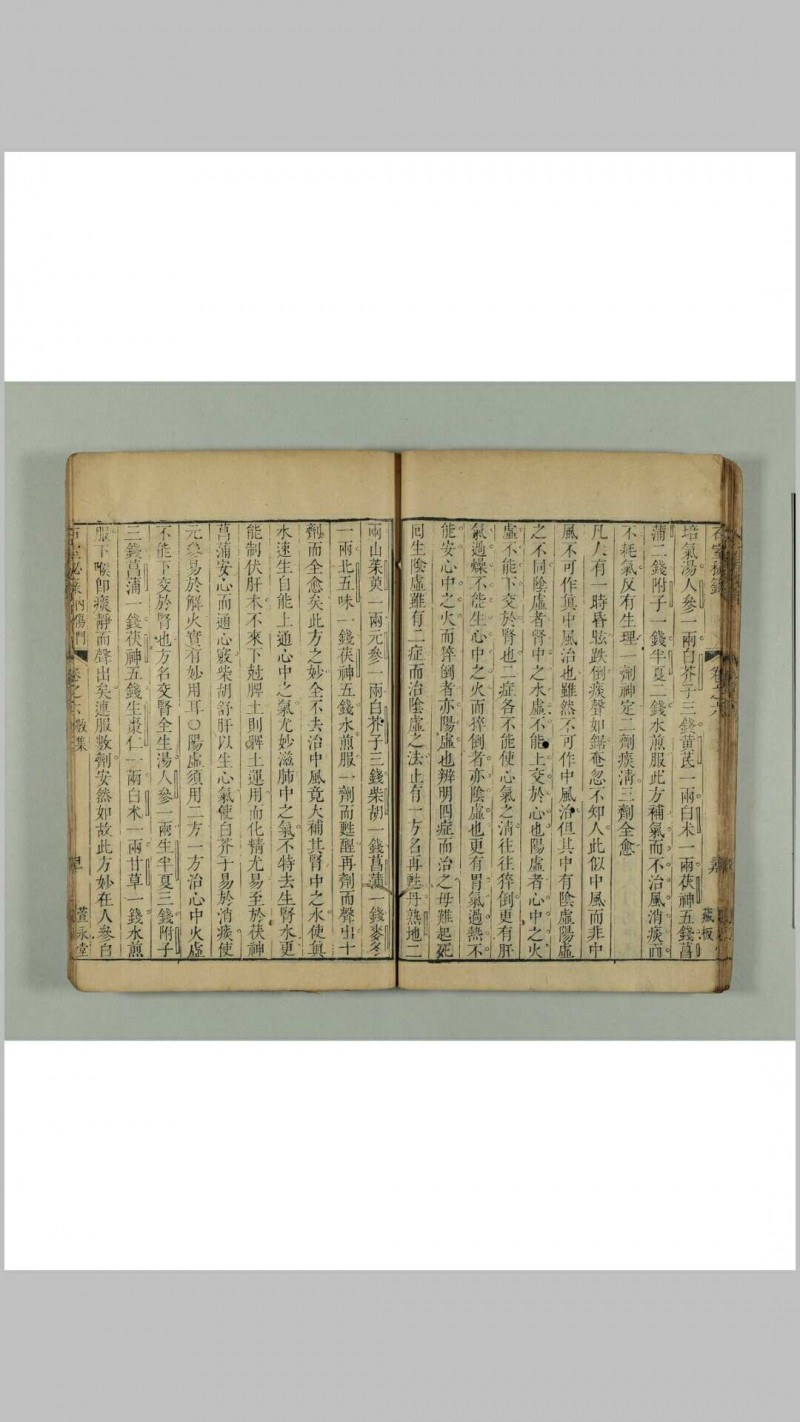 培氣湯人參一兩白芥子三錢黄芪一兩白术一兩茯神五錢菖
蒲二錢附子一錢半夏二錢水煎服此方補氣而不治風消痰而
不耗氣反有生理一劑神定二劑痰淸三劑全愈
凡人有一時昏眩跌倒痰聲如鋸奄忽不知人此似中風而非中
風不可作眞中風治也雖然不可作中風治但其中有陰虛陽虛
之不同陰虛者腎中之水虛不能上交於心也陽虛者心中之火
虛不能下交於腎也二症各不能使心氣之淸往往猝倒更有肝
氣過燥不能生心中之火而猝倒者亦陰虛也更有胃氣過熱不
能安心中之火而猝倒者亦陽虛也辨明四症而治之毋難起死
囘生陰虛雖有二症而治陰虛之法止有一方名再甦丹熟地二
兩山茱萸一兩元參一兩白芥子三錢柴胡一錢菖蒲一錢麥冬
一兩北五味一錢茯神五錢水煎服一劑而甦醒再劑而聲出十
劑而全愈矣此方之妙全不去治中風竟大補其腎中之水使眞
水速生自能上通心中之氣尤妙滋肺中之氣不特去生腎水更
能制伏肝木不來下尅脾土則脾土運用而化精尤易至於茯神
菖蒲安心而通心竅柴胡舒肝以生心氣使白芥子易於消痰使
元參易於解火實有妙用耳〇陽虛須用二方一方治心中火虛
不能下交於腎也方名交腎全生湯人參一兩生半夏三錢附子
三錢菖蒲一錢茯神五錢生棗仁一兩白术一兩甘草一錢水煎
服下喉卽痰靜而聲出矣連服數劑安然如故此方妙在人參白
石室秘錄 內傷門 卷之六 數集 萱永堂
藏板